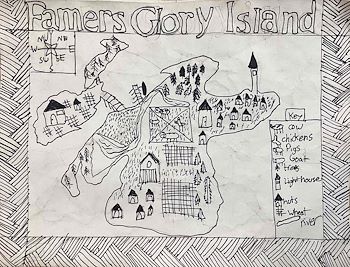 Famers Glory Island
N
NW NE
W E
SW SE
S
Key
cow
chickens
Pigs
Goat
trees
Lighthouse
huts
wheat
River